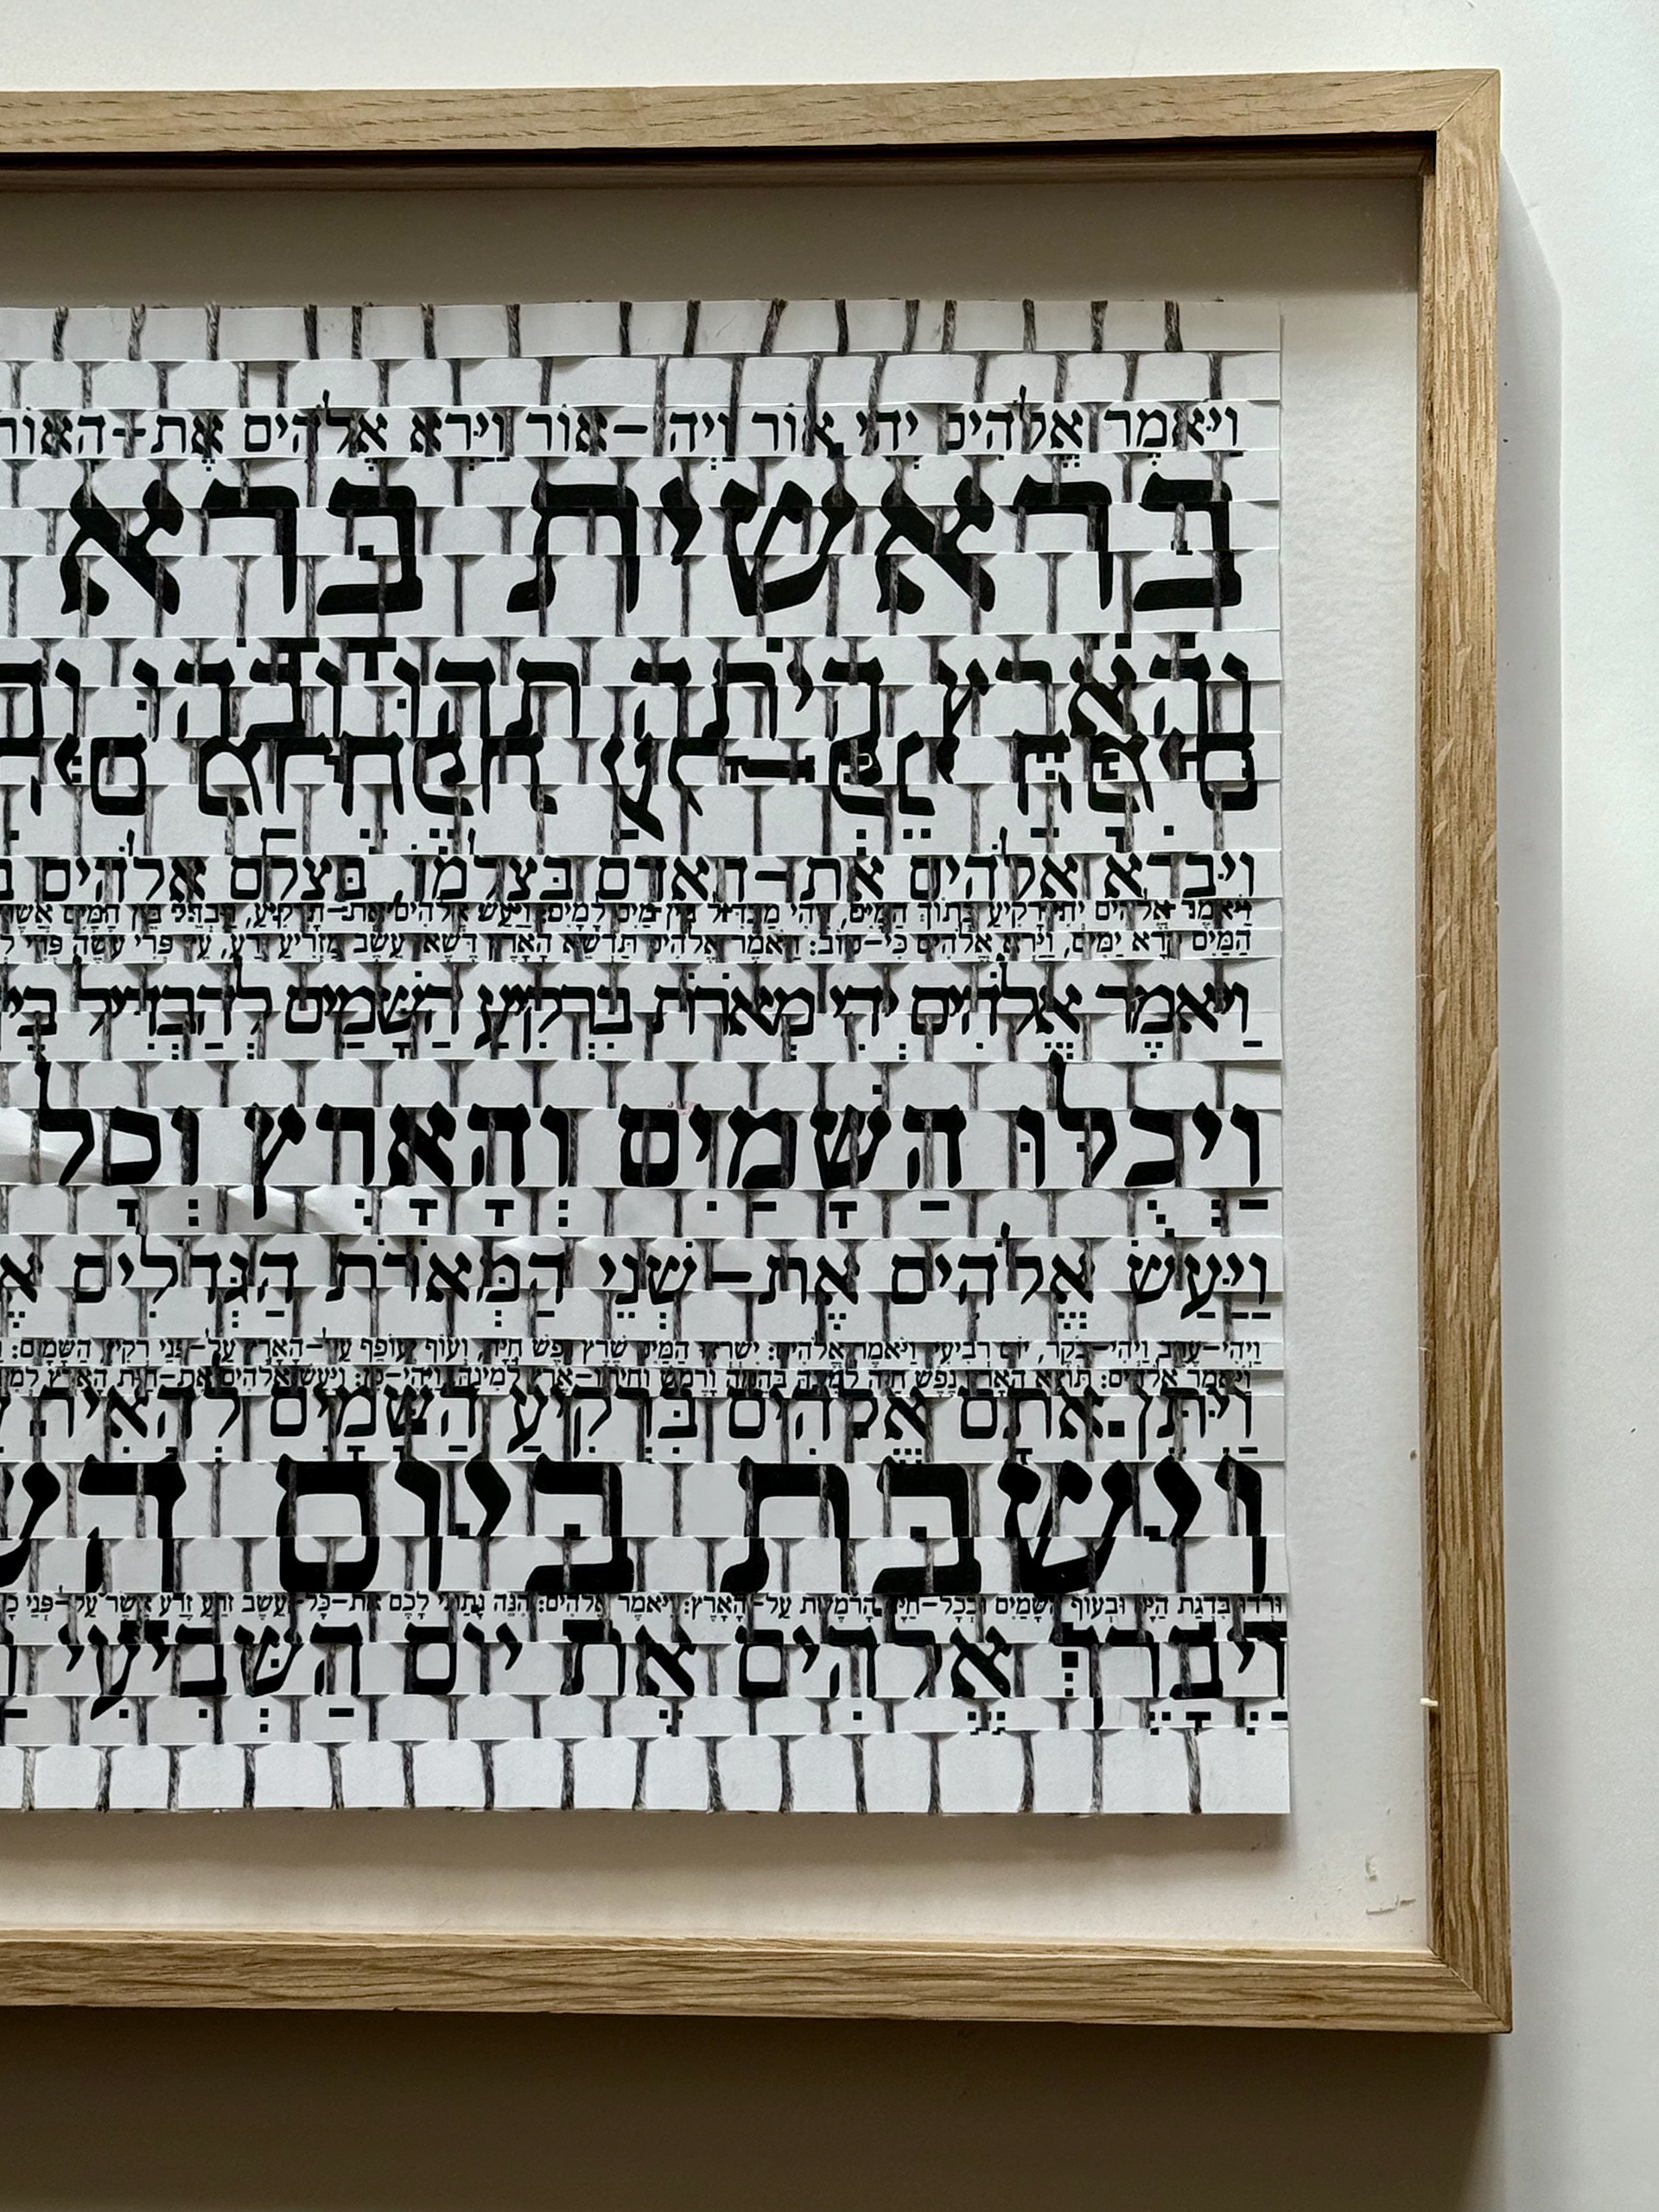 וַיֹּאמֶר אֱלֹהִים יְהִי אוֹר וַיְהִי-אוֹר וַיַּרְא אֱלֹהִים אֶת-הָאוֹר
בראשית ברא
והארץ היתה תהו ובהו
וַיִּבְרָא אֱלֹהִים אֶת-הָאָדָם בְּצַלְמוֹ, בְּצֶלֶם אֱלֹהִים
וַיֹּאמֶר אֱלֹהִים יְהִי רָקִיעַ בְּתוֹךְ הַמָּיִם, וִיהִי מַבְדִּיל בֵּין מַיִם לָמָיִם: וַיַּעַשׂ אֱלֹהִים אֶת-הָרָקִיעַ, וַיַּבְדֵּל בֵּין הַמַּיִם אֲשֶׁר
הַמַּיִם קָרָא יַמִּים, וַיַּרְא אֱלֹהִים כִּי-טוֹב: וַיֹּאמֶר אֱלֹהִים תַּדְשֵׁא הָאָרֶץ דֶּשֶׁא עֵשֶׂב מַזְרִיעַ זֶרַע, עֵץ פְּרִי עֹשֶׂה פְּרִי
וַיֹּאמֶר אֱלֹהִים יְהִי מְאֹרֹת בִּרְקִיעַ הַשָּׁמַיִם לְהַבְדִּיל בֵּין
וַיְכֻלּוּ הַשָּׁמַיִם וְהָאָרֶץ וְכָל
וַיַּעַשׂ אֱלֹהִים אֶת-שְׁנֵי הַמְּאֹרֹת הַגְּדֹלִים
וַיְהִי-עֶרֶב וַיְהִי-בֹקֶר, יוֹם רְבִיעִי: וַיֹּאמֶר אֱלֹהִים: יִשְׁרְצוּ הַמַּיִם שֶׁרֶץ נֶפֶשׁ חַיָּה, וְעוֹף יְעוֹפֵף עַל-הָאָרֶץ עַל-פְּנֵי רְקִיעַ הַשָּׁמָיִם:
וַיֹּאמֶר אֱלֹהִים: תּוֹצֵא הָאָרֶץ נֶפֶשׁ חַיָּה לְמִינָהּ בְּהֵמָה וָרֶמֶשׂ וְחַיְתוֹ-אֶרֶץ לְמִינָהּ וַיְהִי-כֵן: וַיַּעַשׂ אֱלֹהִים אֶת-חַיַּת הָאָרֶץ
וַיִּתֵּן אֹתָם אֱלֹהִים בִּרְקִיעַ הַשָּׁמָיִם לְהָאִיר
וישבת ביום
וּרְדוּ בִּדְגַת הַיָּם וּבְעוֹף הַשָּׁמַיִם וּבְכָל-חַיָּה הָרֹמֶשֶׂת עַל-הָאָרֶץ: וַיֹּאמֶר אֱלֹהִים: הִנֵּה נָתַתִּי לָכֶם אֶת-כָּל-עֵשֶׂב זֹרֵעַ זֶרַע אֲשֶׁר עַל-פְּנֵי
וַיְבָרֶךְ אֱלֹהִים אֶת יוֹם הַשְּׁבִיעִי